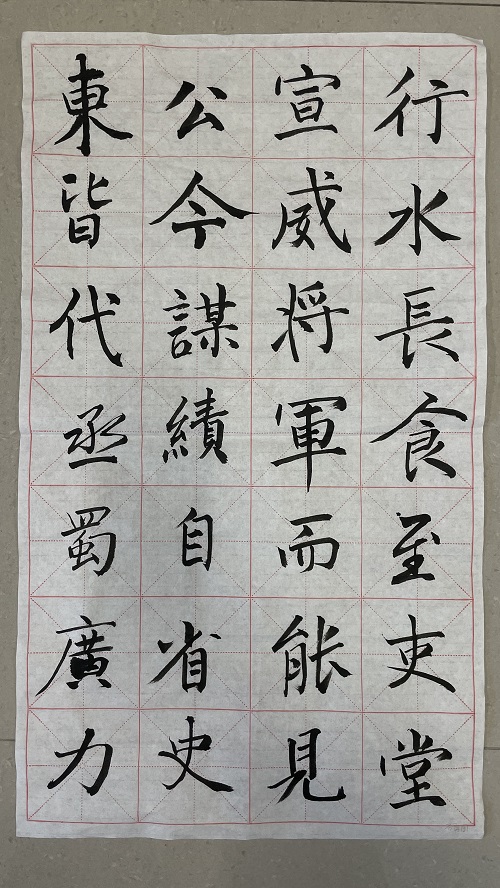 行水長食至吏堂
宣威将軍而能見
公今謀績自省史
東皆代丞蜀廣力